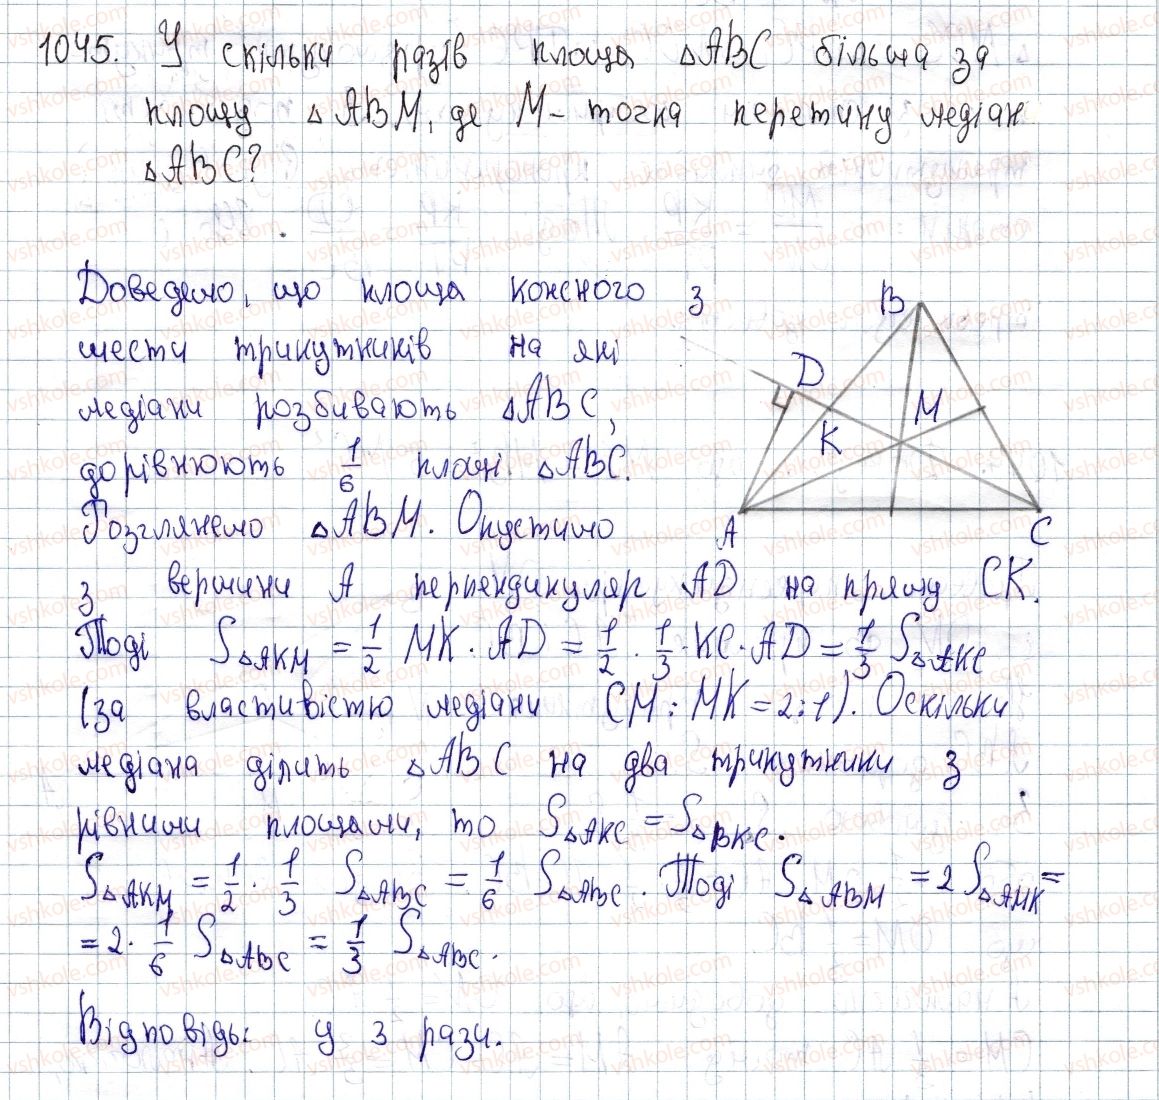 1045. У скільки разів площа △ABC більша за
площу △ABM, де M - точка перетину медіан
△ABC?
Доведемо, що площа кожного з
шести трикутників на які
медіани розбивають △ABC,
дорівнюють 1/6 площі △ABC.
Розглянемо △ABM. Опустимо
з вершини A перпендикуляр AD на пряму CK.
Тоді S△AKM = 1/2 MK · AD = 1/2 · 1/3 · KC · AD = 1/3 S△AKC
(за властивістю медіани CM : MK = 2:1). Оскільки
медіана ділить △ABC на два трикутники з
рівними площами, то S△AKC = S△BKC.
S△AKM = 1/2 · 1/3 S△ABC = 1/6 S△ABC. Тоді S△ABM = 2 S△AMK =
= 2 · 1/6 S△ABC = 1/3 S△ABC.
Відповідь: у 3 рази.
B
D
M
K
A
C